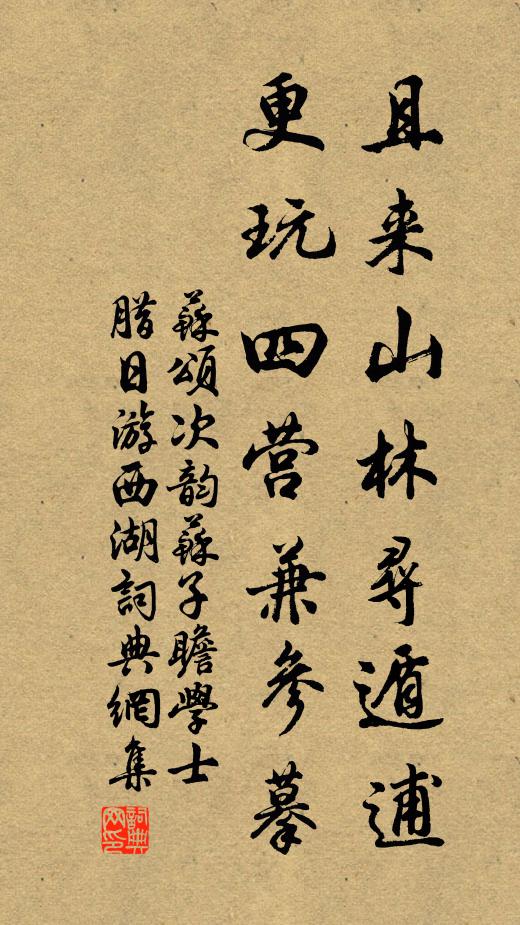 且来山林尋遁逋
更玩四营兼參摹
蘇頌次韵蘇子瞻學士
腊日游西湖詞典網集
詞典网印